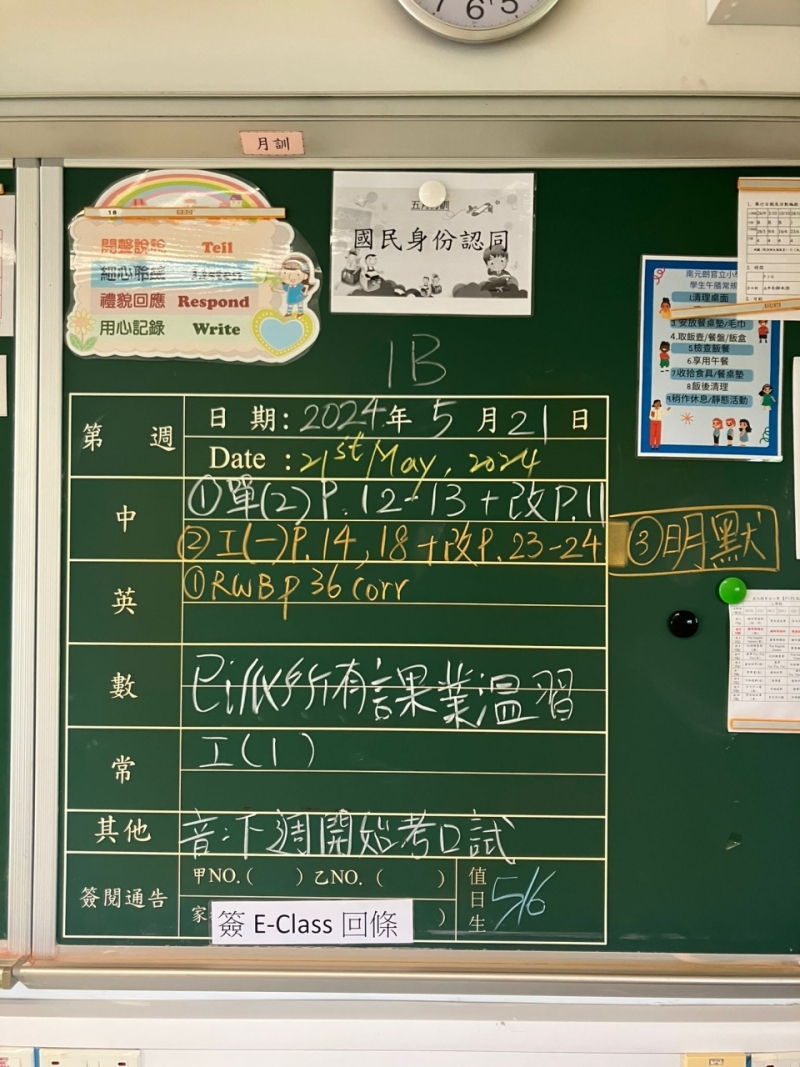 6 5
月訓
開聲說話 Tell
細心聆聽 Listen
禮貌回應 Respond
用心記錄 Write
國民身份認同
學生午膳常規
1.清理桌面
3.安放餐桌墊/毛巾
4.取飯壺/餐盤/飯盒
5.檢查飯餐
6.享用午餐
7.收拾食具/餐桌墊
8.飯後清理
9.稍作休息/靜態活動
1B
第 週
日 期: 2024年 5 月 21 日
Date : 21st May, 2024
中
①單(2) P. 12-13 + 改P.11
②工(一)P.14, 18 + 改P. 23-24
③明默
英
①RWB p 36 corr
數
所有課業溫習
常
工(1)
其他
音:下週開始考口試
簽閱通告
甲NO.( ) 乙NO. ( )
家 )
簽 E-Class 回條
值日生
5/6